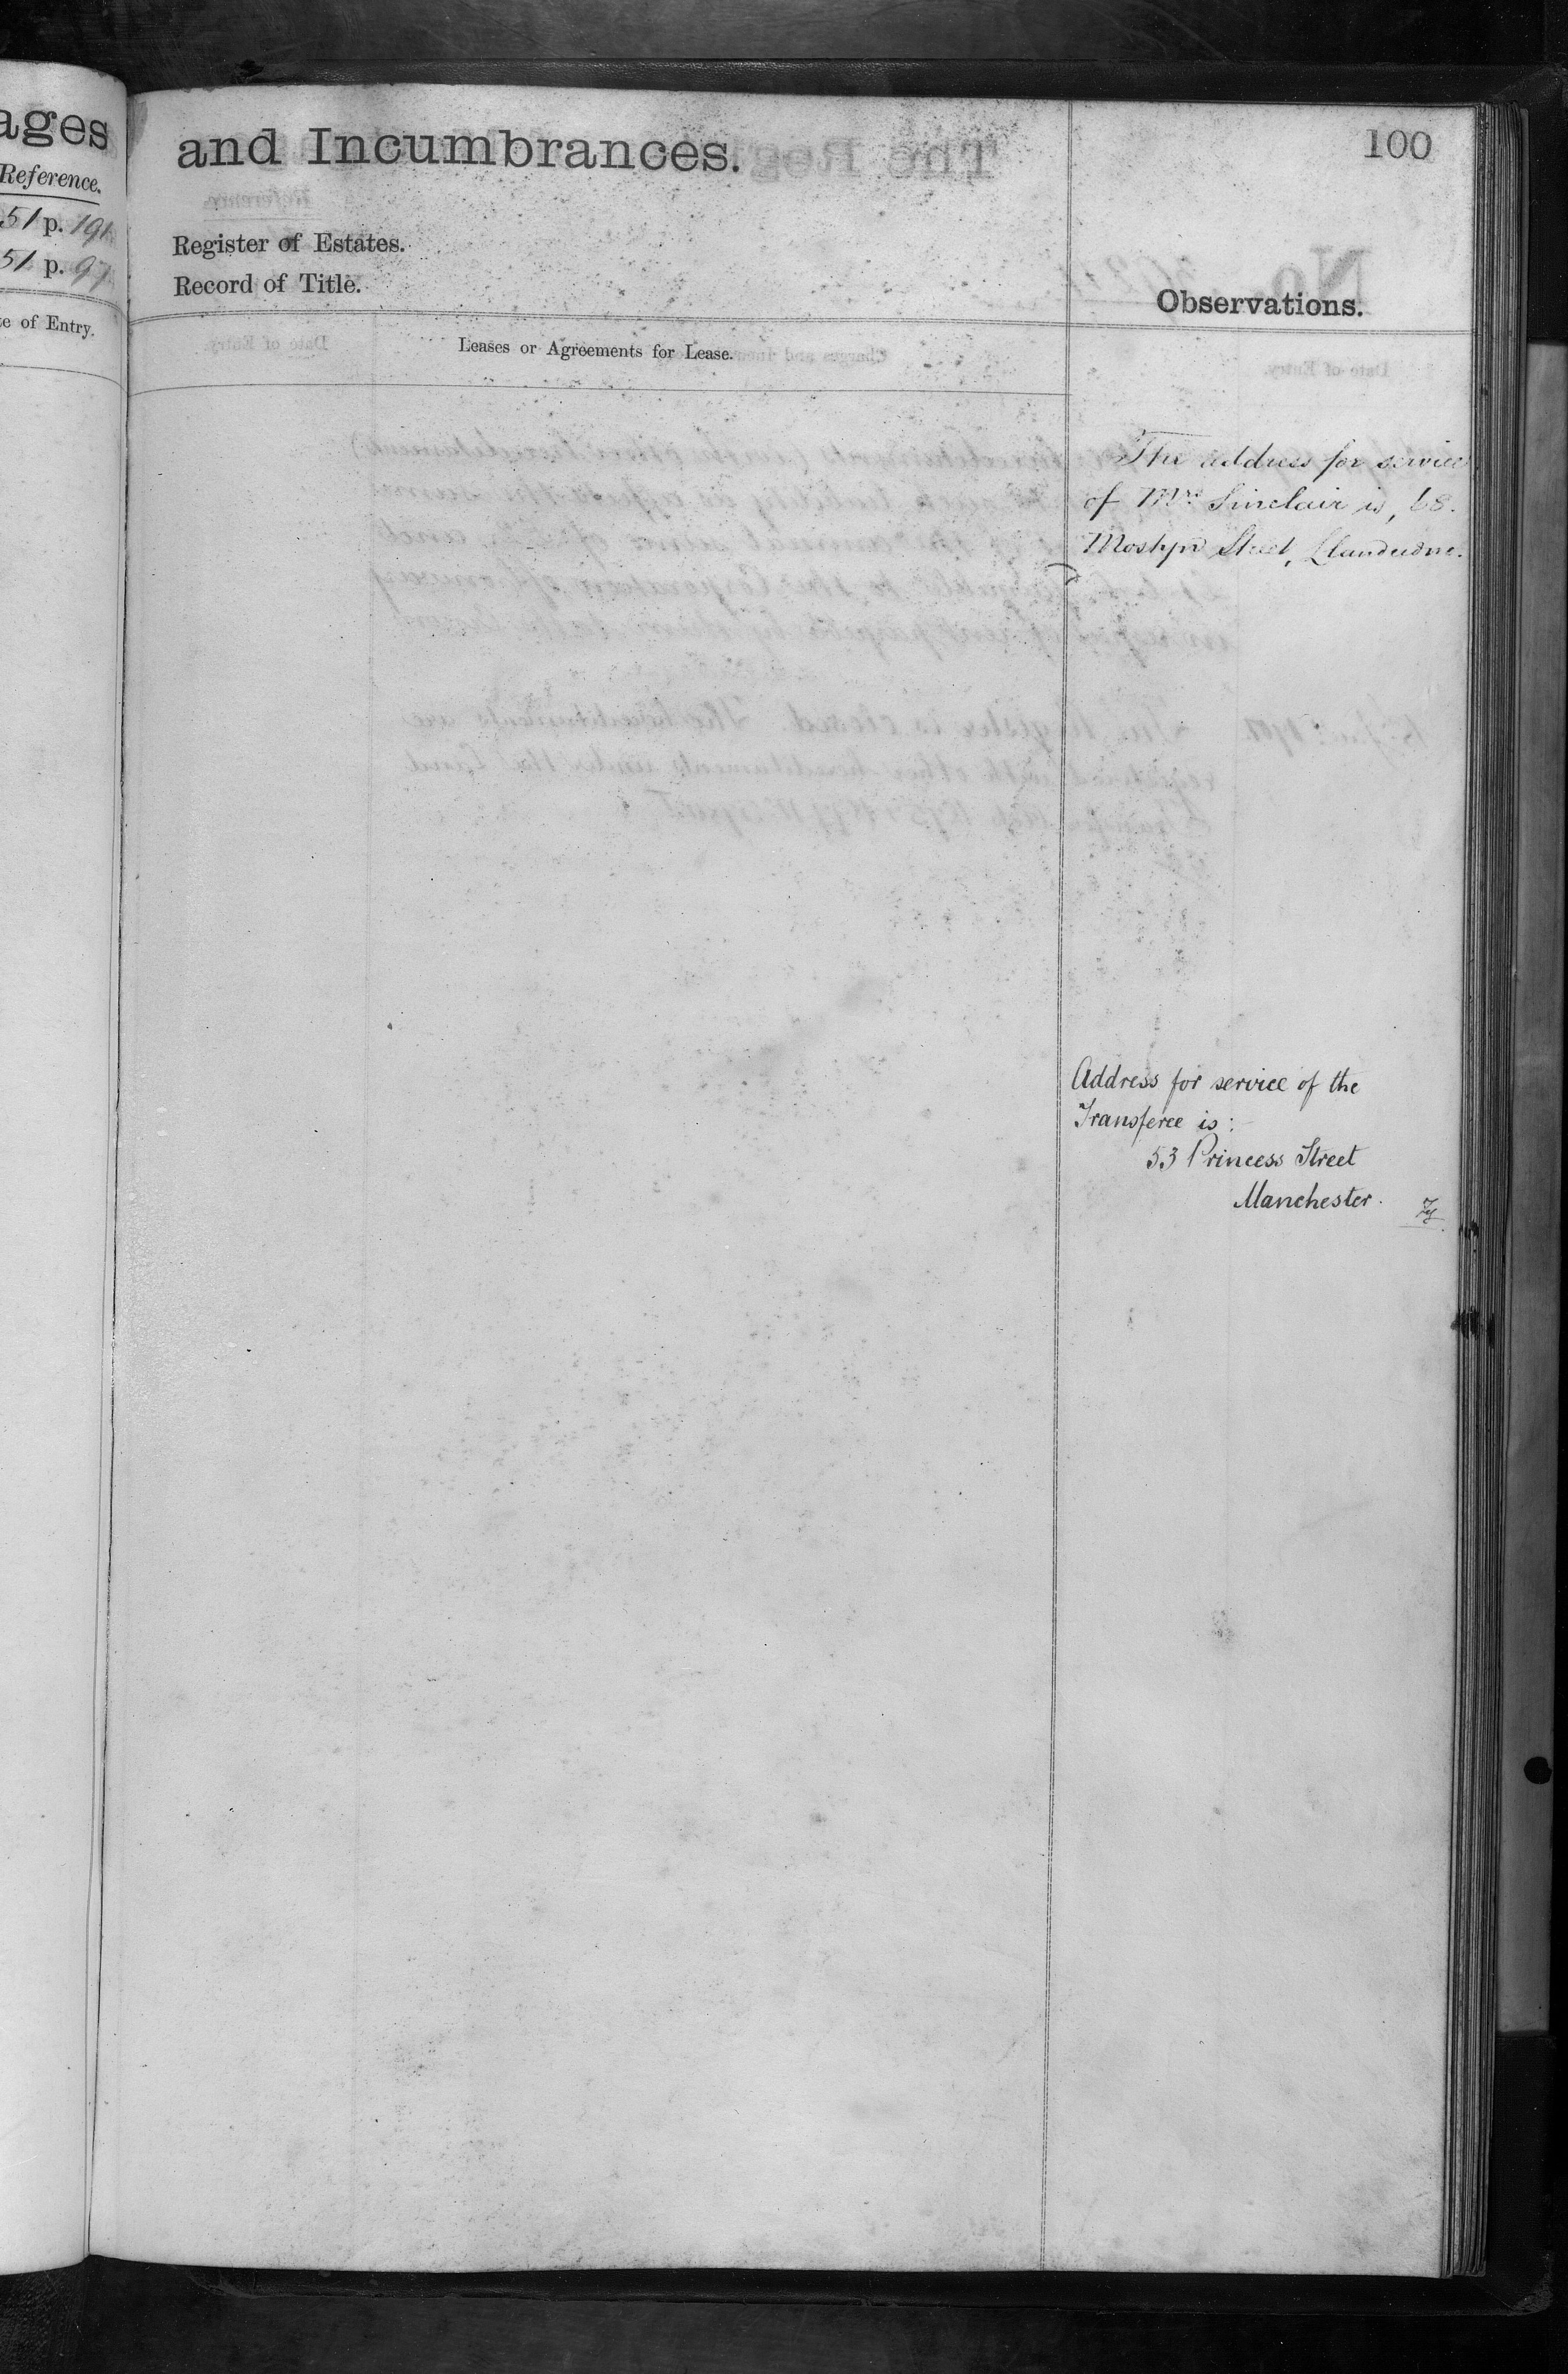 ages
Reference.
51 p. 191
51 p. 97
te of Entry.
and Incumbrances.
100
Register of Estates.
Record of Title.
Observations.
Leases or Agreements for Lease.
The address for service
of Mrs Sinclair is, 68.
Mostyn Street, Llandudno.
Address for service of the
Transferee is :
53 Princess Street
Manchester.